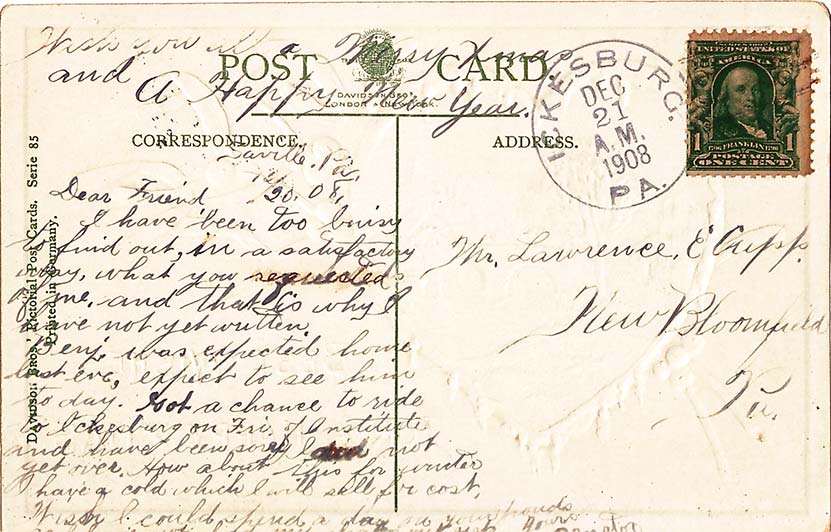 Wish you all a Merry Xmas
and A Happy New Year.
POST CARD.
DAVIDSON BROS.
LONDON & NEW YORK.
CORRESPONDENCE.
ADDRESS.
ICKESBURG.
DEC
21
A.M.
1908
PA.
UNITED STATES OF
AMERICA
1706 FRANKLIN 1790
1 1
POSTAGE
ONE CENT
Davidson Bros.' Pictorial Post Cards. Serie 85
Printed in Germany.
Saville, Pa.
12/20, 08,
Dear Friend
I have been too buisy
to find out, in a satisfactory
way, what you requested
of me. and that is why I
have not yet written.
Benj. was expected home
last eve, expect to see him
to day. Got a chance to ride
to Ickesburg on Fri. of Institute
and have been sorry I did not
yet over. How about this for winter
I have a cold which I will sell for cost.
Wish I could spend a day
Yours
Mr. Lawrence. E Cupp.
New Bloomfield
Pa.